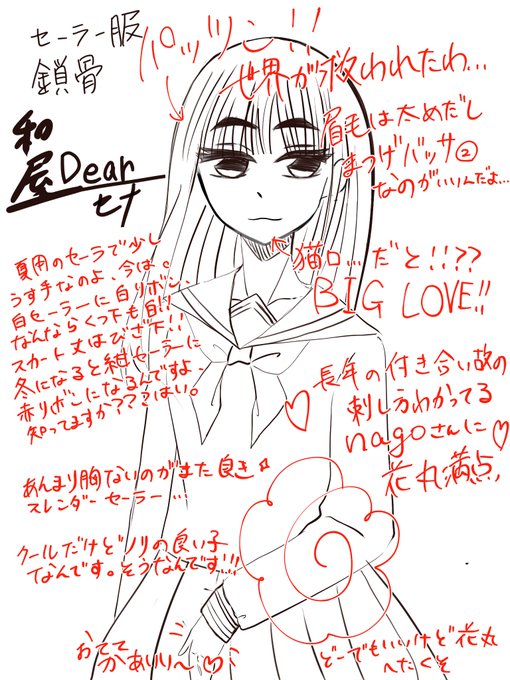 セーラー服
鎖骨
パッツン!!
世界が救われたわ…
和
屋Dear
セナ
眉毛は太めだし
まつげバッサ②
なのがいいんだよ…
猫口…だと!!??
BIG LOVE!!
夏用のセーラで少し
うす手なのよ、今は。
白セーラーに白リボン、
なんならくつ下も白!!
スカート丈はひざ下!!
冬になると紺セーラーに
赤リボンになるんですよ、
知ってますか???はい。
長年の付き合い故の
刺し方わかってる
nagoさんに♡
花丸満点、
あんまり胸ないのがまた良き☆
スレンダーセーラー…
クールだけどノリの良い子
なんです。そうなんです!!!
おてて
かあいり〜♡
どーでもいいけど花丸
へたくそ